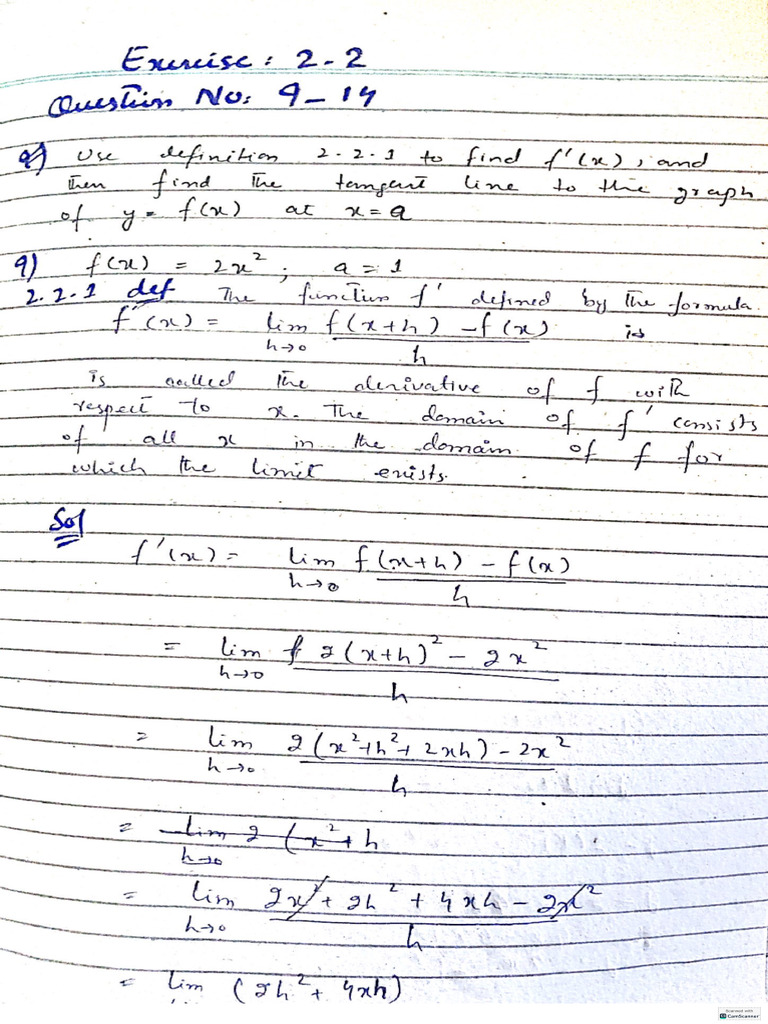 Exercise: 2-2
Question No: 9-14
Q) Use definition 2.2.1 to find f'(x), and
then find the tangent line to the graph
of y = f(x) at x=a
9) f(x) = 2x² ; a = 1
2.2.1 def The function f' defined by the formula
f'(x) = lim h→0 f(x+h) - f(x) / h is
is called the derivative of f with
respect to x. The domain of f' consists
of all x in the domain of f for
which the limit exists.
Sol
f'(x) = lim h→0 f(x+h) - f(x) / h
= lim h→0 f 2(x+h)² - 2x² / h
= lim h→0 2(x²+h²+2xh) - 2x² / h
= lim h→0 2 (x²+h
= lim h→0 2x² + 2h² + 4xh - 2x² / h
= lim (2h² + 4xh)
Scanned with
CS CamScanner